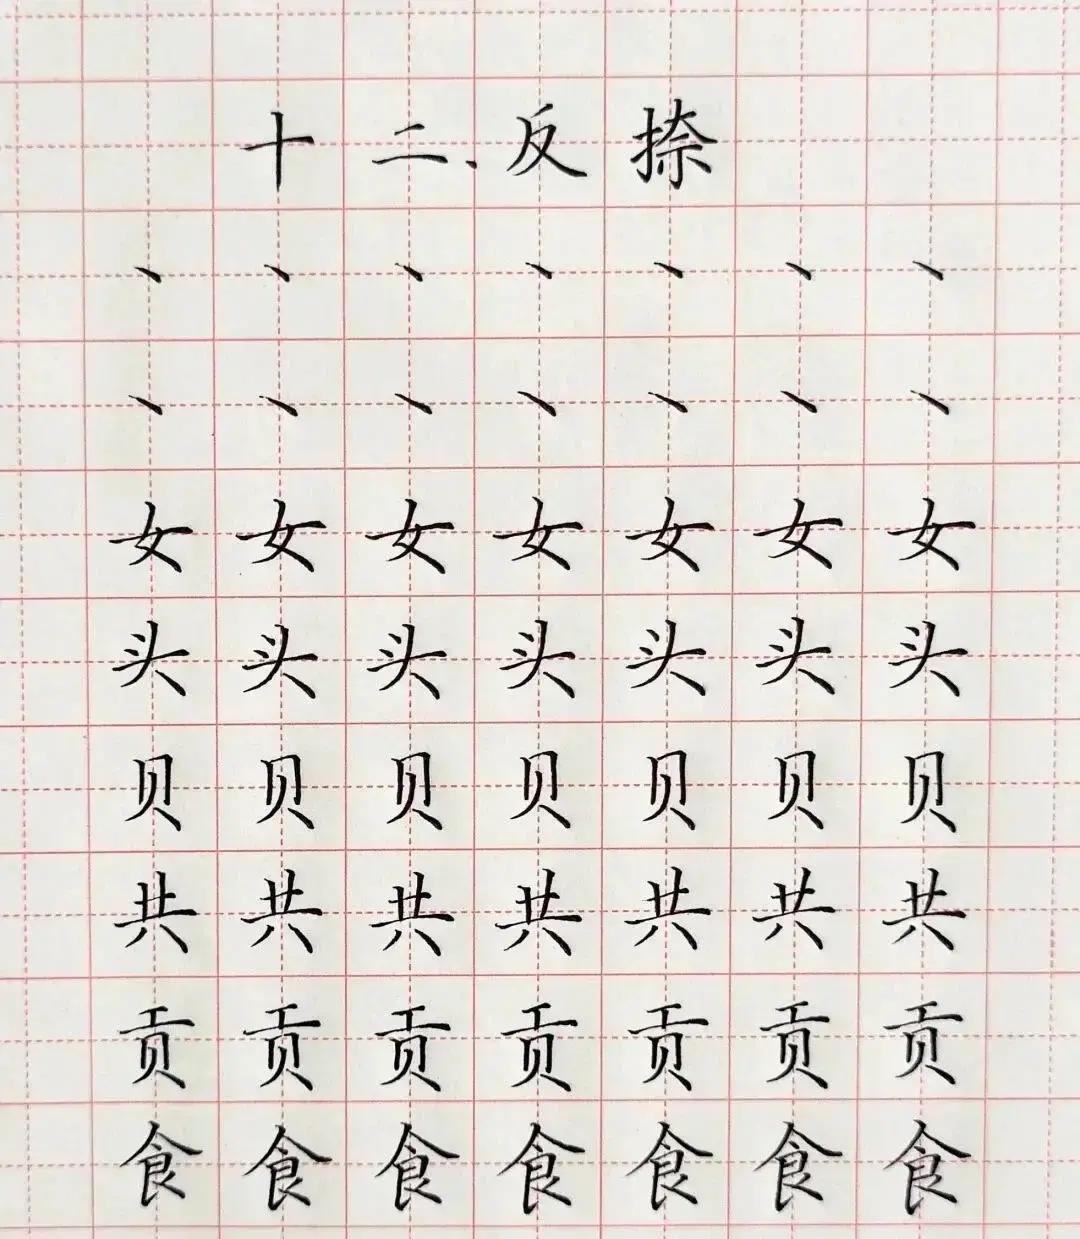 十二、反捺
丶丶丶丶丶丶丶
丶丶丶丶丶丶丶
女女女女女女女
头头头头头头头
贝贝贝贝贝贝贝
共共共共共共共
贡贡贡贡贡贡贡
食食食食食食食